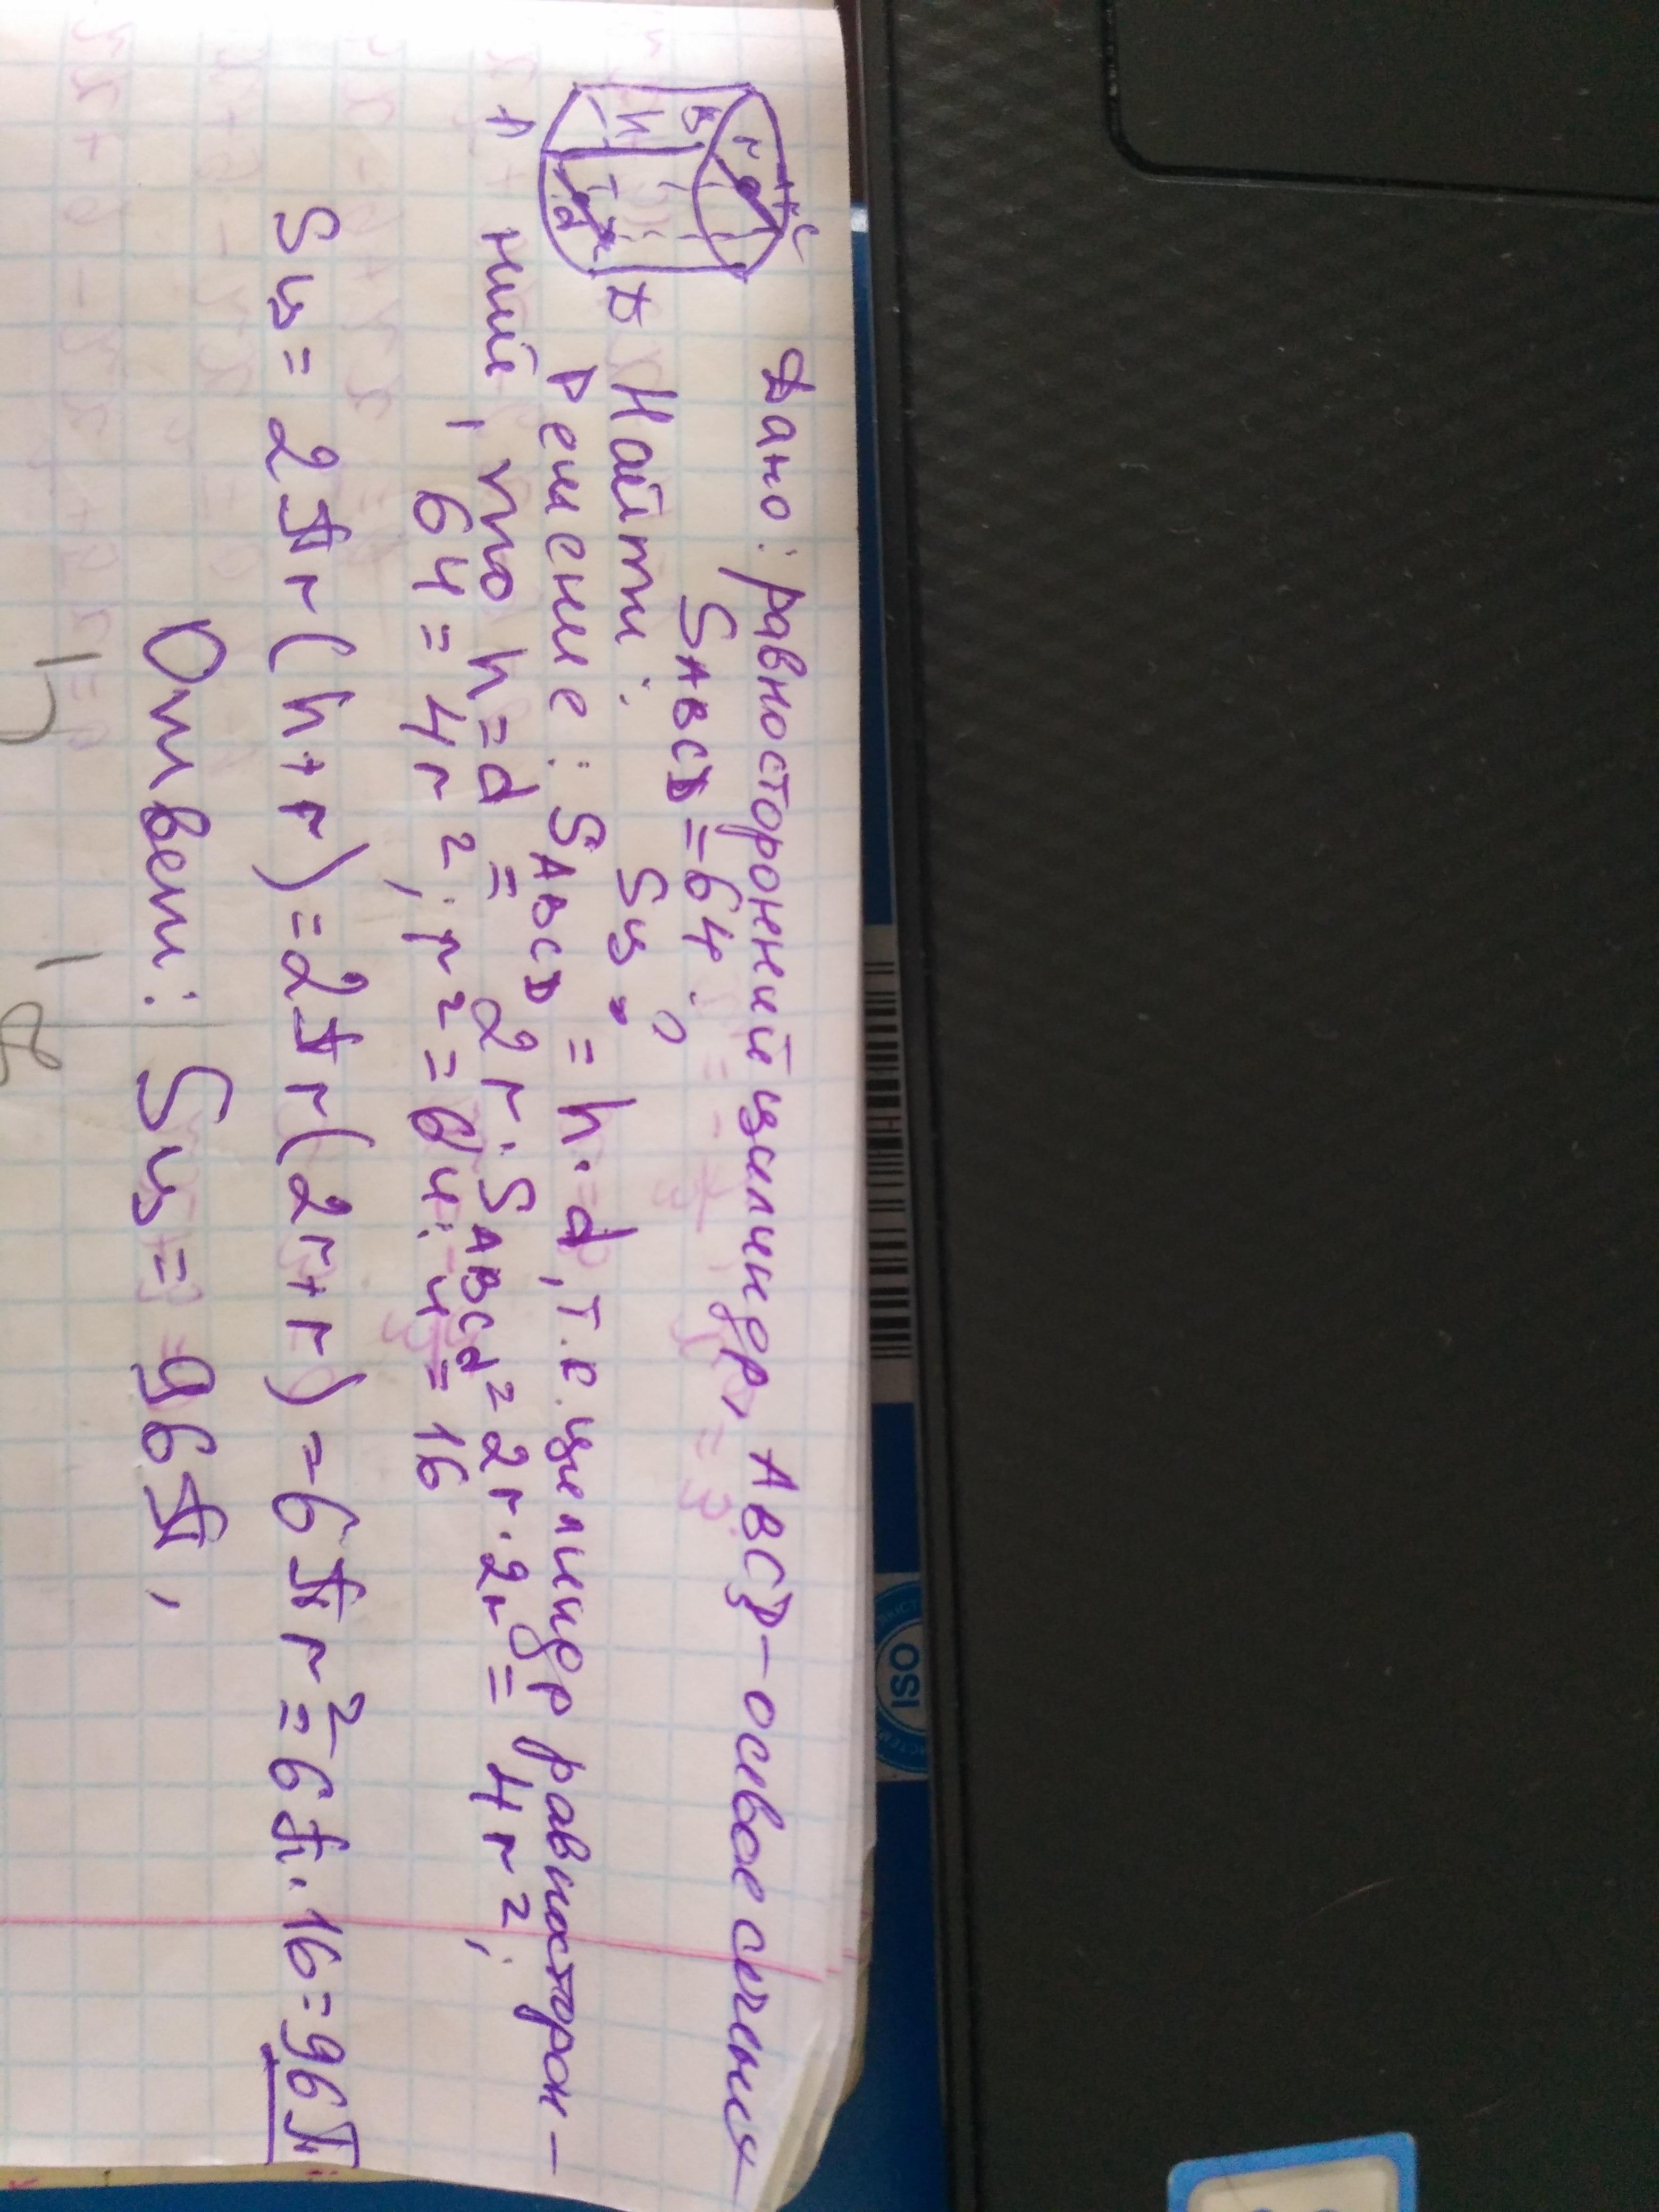 Дано: равносторонний цилиндр, ABCD - осевое сечение
S ABCD = 64.
Найти: Sц ?
Решение: S ABCD = h · d, т.к. цилиндр равносторон-
ний, то h = d = 2r. S ABCD = 2r · 2r = 4r²;
64 = 4r²; r² = 64 : 4 = 16
Sц = 2πr(h + r) = 2πr(2r + r) = 6πr² = 6π · 16 = 96π
Ответ: Sц = 96π,
r
C
B
h
d
A
D
ISO